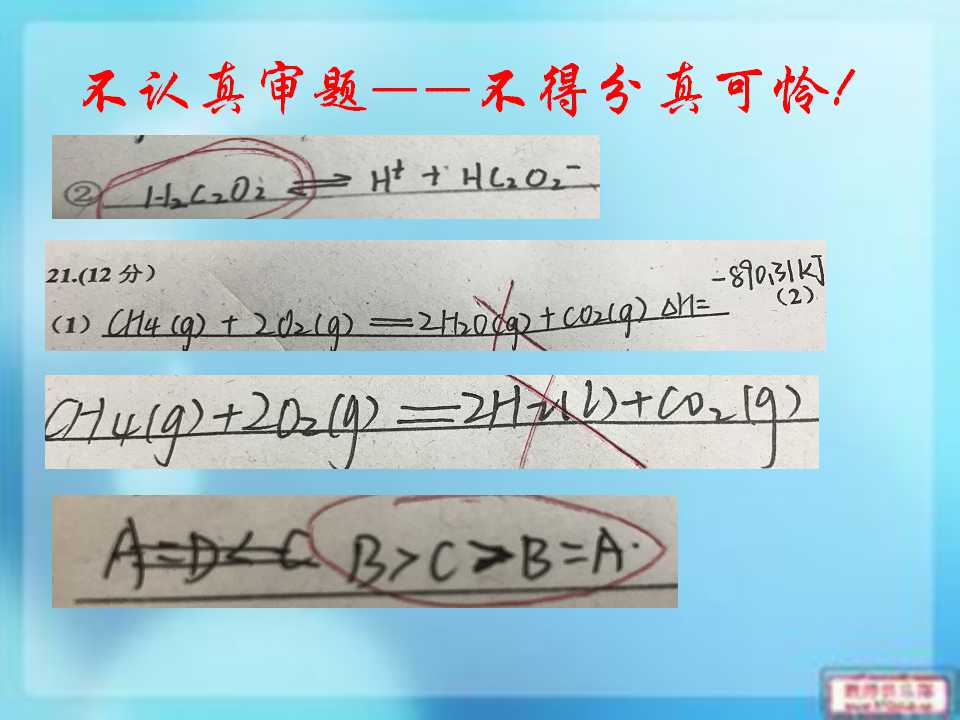 不认真审题——不得分真可怜!
② H₂C₂O₂ ⇌ H⁺ + HC₂O₂⁻
21.(12 分)
-890.31KJ
(1) CH4(g) + 2O2(g) == 2H2O(g) + CO2(g) ΔH= (2)
CH4(g)+2O2(g) == 2H2O(l)+CO2(g)
A=D<C B>C>B=A.